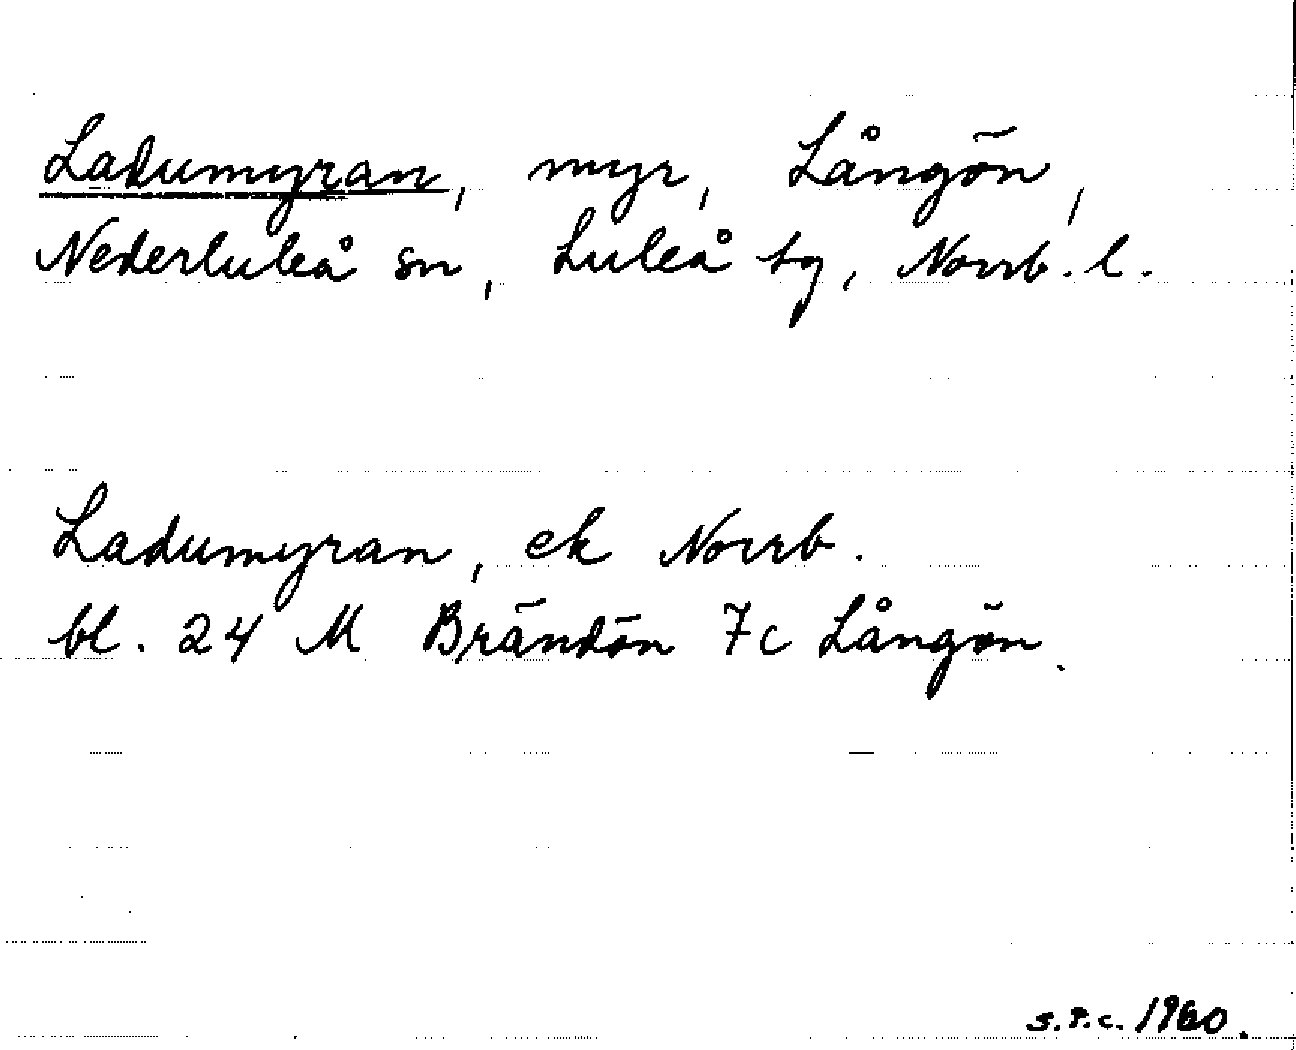 Ladumyran, myr, Långön,
Nederluleå sn, Luleå tg, Norrb. l.
Ladumyran, ek Norrb.
bl. 24 M Brändön 7c Långön.
s.r.c. 1960.